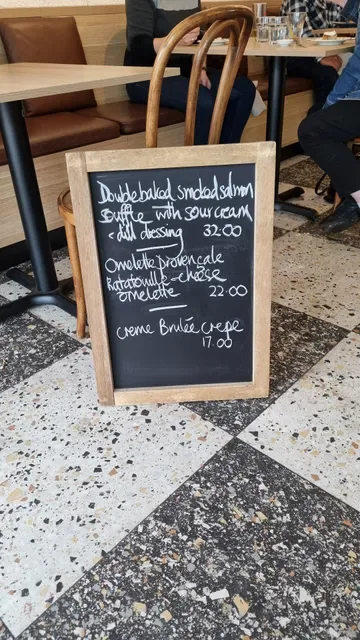 Double baked smoked salmon
souffle with sour cream
+ dill dressing 32:00
Omelette provençale
Ratatouille - cheese
omelette 22:00
creme Brulée crepe
17.00